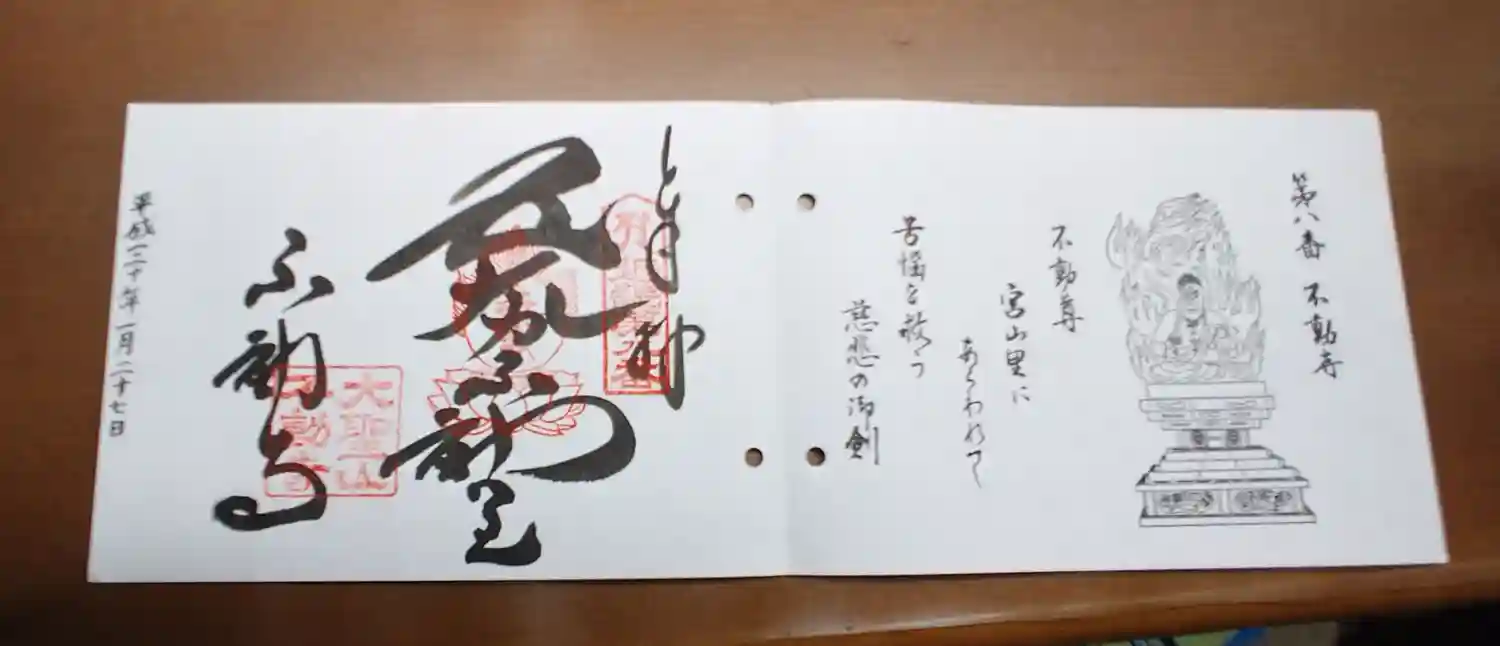 第八番 不動寺
不動尊
宮山里に
あらわれて
苦悩を救う
慈悲の御剣
奉拝
不動寺
大聖山
不動寺
平成二十年一月二十七日